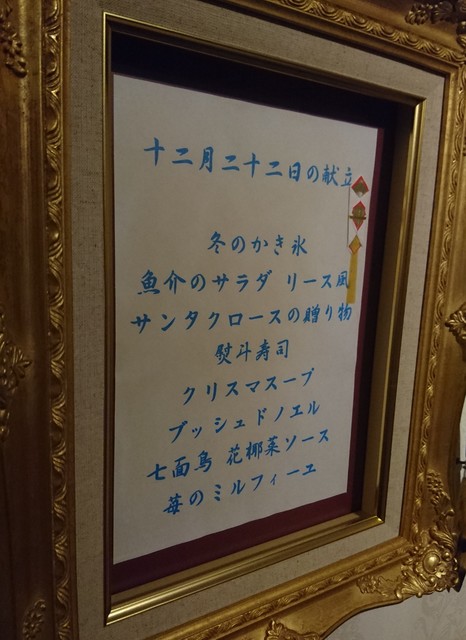 十二月二十二日の献立
冬のかき氷
魚介のサラダ リース風
サンタクロースの贈り物
熨斗寿司
クリスマスープ
ブッシュドノエル
七面鳥 花椰菜ソース
苺のミルフィーユ